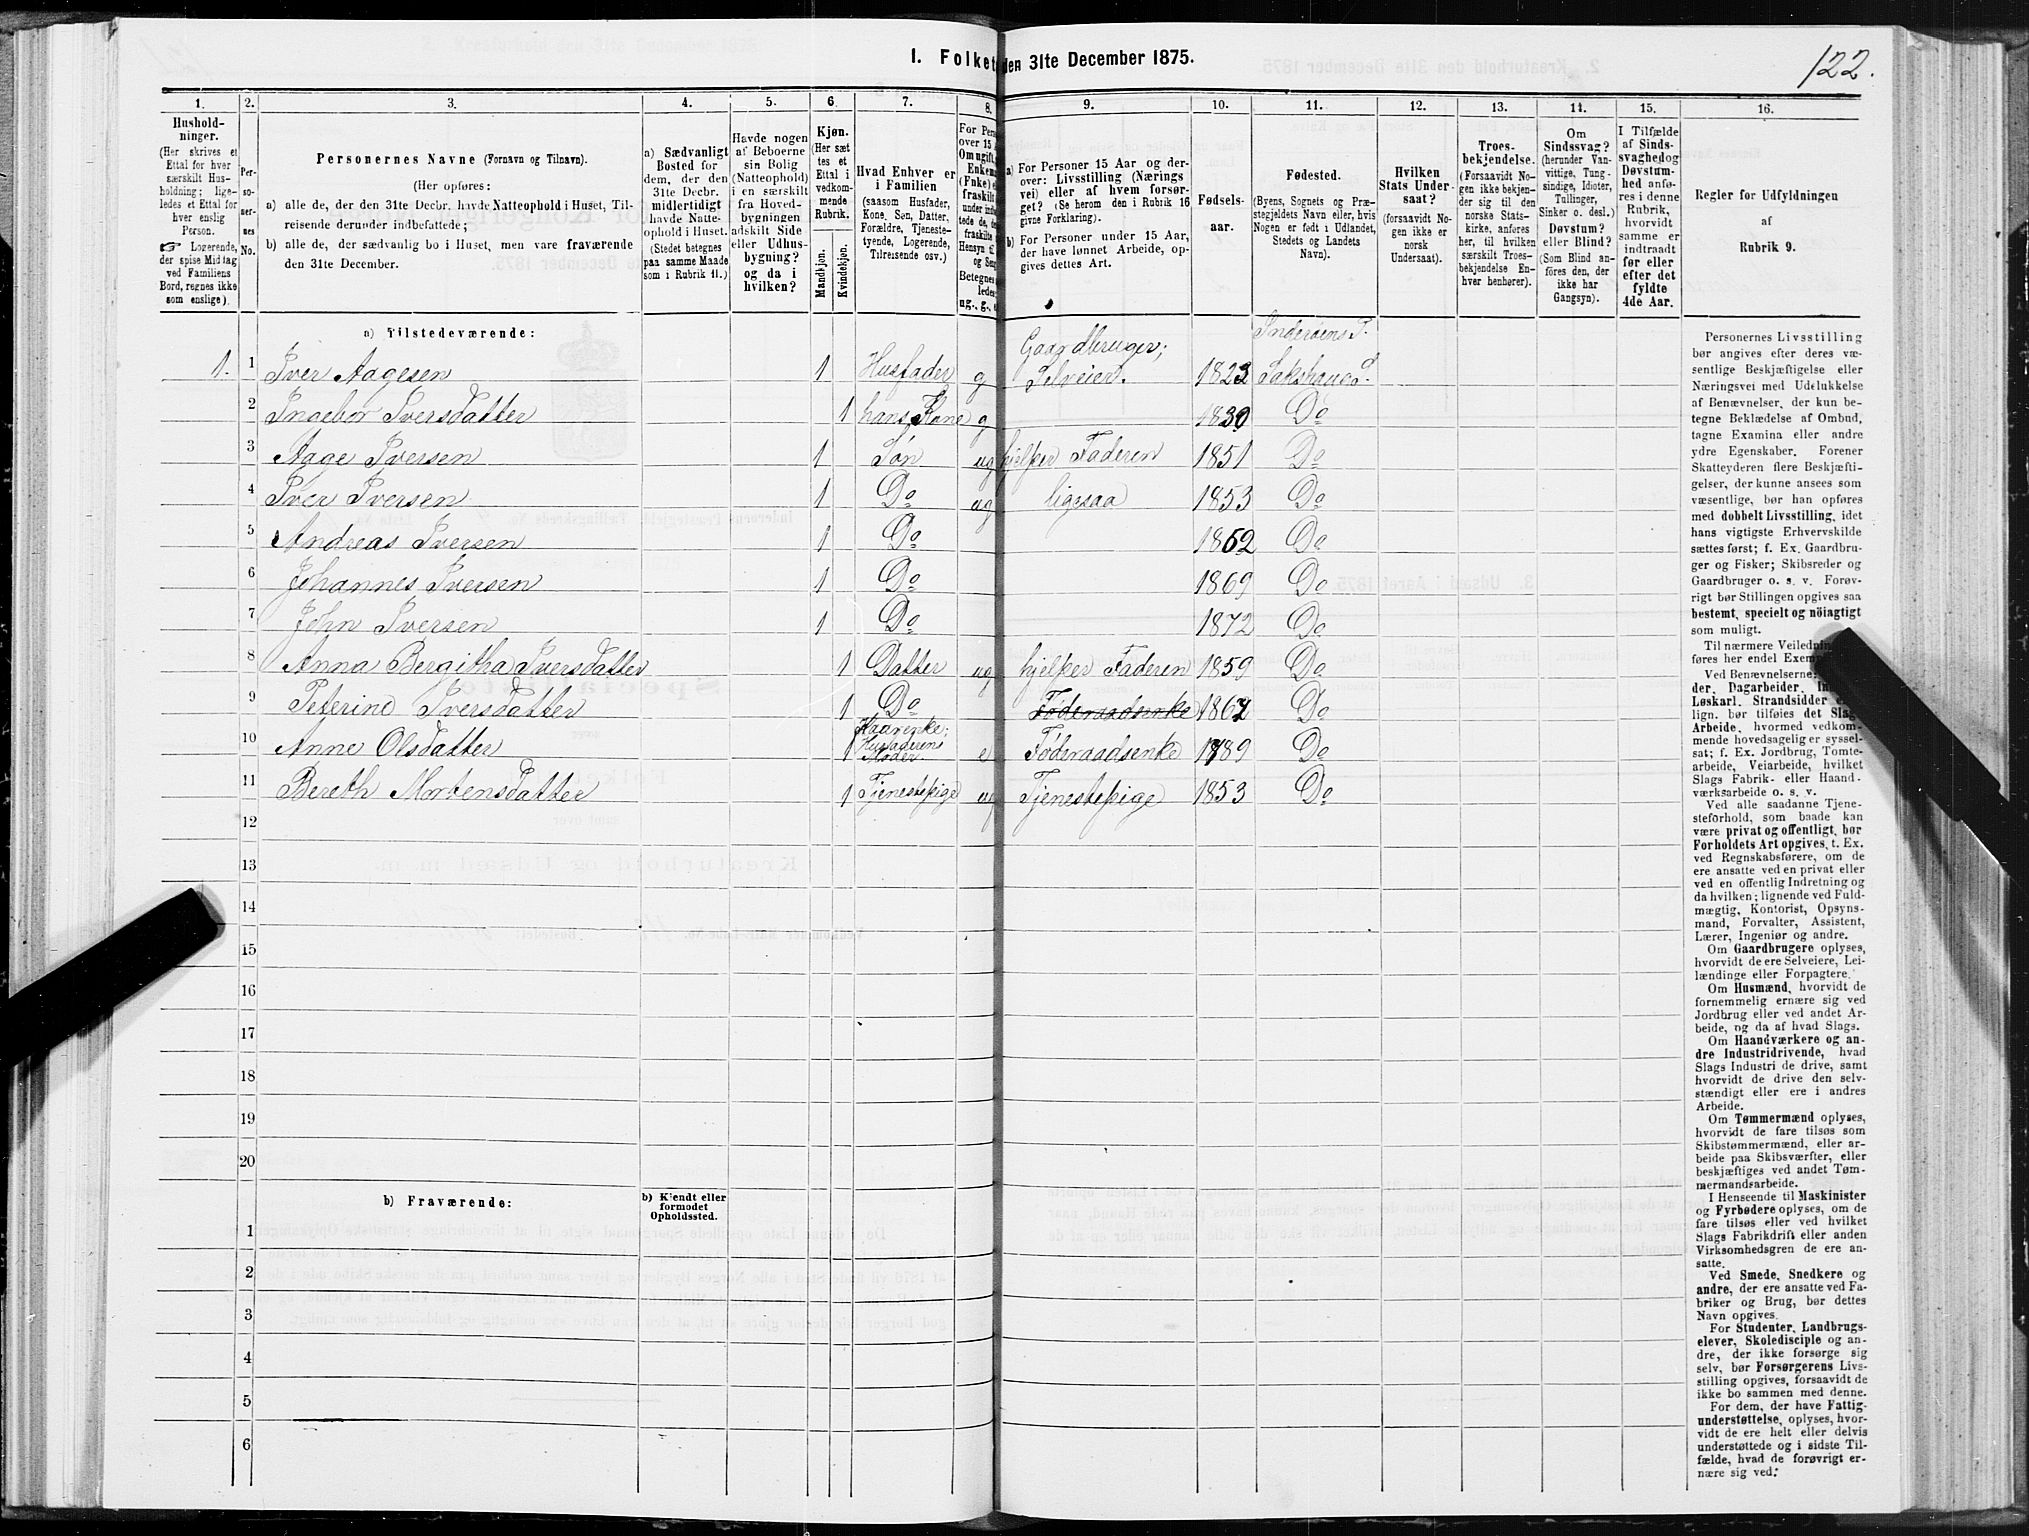 122.
I. Folket den 31te December 1875.
1. 2. 3. 4. 5. 6. 7. 8. 9. 10. 11. 12. 13. 14. 15. 16.
Hushold-
ninger.
(Her skrives et
Ettal for hver
særskilt Hus-
holdning; lige-
ledes et Ettal for
hver enslig
Person.
☞ Logerende,
der spise Middag
ved Familiens
Bord, regnes ikke
som enslige).
Per-
so-
ner-
nes
No.
Personernes Navne (Fornavn og Tilnavn).
(Her opføres:
a) alle de, der den 31te Decbr. havde Natteophold i Huset, Til-
reisende derunder indbefattede;
b) alle de, der sædvanlig bo i Huset, men vare fraværende
den 31te December.
a) Sædvanligt
Bosted for
dem, der den
31te Decbr.
midlertidigt
havde Natte-
ophold i Huset.
(Stedet betegnes
paa samme Maade
som i Rubrik 11.)
Havde nogen
af Beboerne
sin Bolig
(Natteophold)
i en særskilt
fra Hoved-
bygningen
adskilt Side
eller Udhus-
bygning?
og da i
hvilken?
Kjøn.
(Her sæt
tes et
Ettal i
vedkom-
mende
Rubrik.
Mandkjøn.
Kvindekjøn.
Hvad Enhver er
i Familien
(saasom Husfader,
Kone, Søn, Datter,
Forældre, Tjeneste-
tyende, Logerende,
Tilreisende osv.)
For Pers
over 15 A
Om ugift,
Enkem
(Enke) e
fraskilt
under indb
tede de,
fraskilte
Hensyn ti
og Sen
Betegnes
ledes
ug., g., e
a) For Personer 15 Aar og der-
over: Livsstilling (Nærings
vei) eller af hvem forsør-
get? (Se herom den i Rubrik 16
givne Forklaring).
b) For Personer under 15 Aar,
der have lønnet Arbeide, op-
gives dettes Art.
Fødsels-
aar.
Fødested.
(Byens, Sognets og Præ-
stegjeldets Navn eller, hvis
Nogen er født i Udlandet,
Stedets og Landets
Navn).
Hvilken
Stats Under-
saat?
(forsaavidt No-
gen ikke er
norsk
Undersaat).
Troes-
bekjendelse.
(Forsaavidt No-
gen ikke bekjen-
der sig til den
norske Stats-
kirke, anføres
her, til hvilken
særskilt Troes-
bekjendelse En-
hver henhører).
Om
Sindssvag?
(herunder Van-
vittige, Tung-
sindige, Idioter,
Tullinger,
Sinker o. desl.)
Døvstum?
eller Blind?
(Som Blind an-
føres den, der
ikke har
Gangsyn).
I Tilfælde
af Sinds-
svaghed og
Døvstum-
hed anfø-
res i denne
Rubrik,
hvorvidt
samme er
indtraadt
før eller
efter det
fyldte
4de Aar.
Regler for Udfyldningen
af
Rubrik 9.
a) Tilstedeværende:
1. 1 Iver Aagesen 1 Husfader g Gaardbruger; Selveier. 1823 Inderøens P. Sakshaug S.
2 Ingebor Iversdatter 1 hans Kone g 1830 Do
3 Aage Iversen 1 Søn ug hjelper Faderen 1851 Do
4 Iver Iversen 1 Do ug ligesaa 1853 Do
5 Andreas Iversen 1 Do 1862 Do
6 Johannes Iversen 1 Do 1869 Do
7 John Iversen 1 Do 1872 Do
8 Anna Bergitha Iversdatter 1 Datter ug hjelper Faderen 1859 Do
9 Peterine Iversdatter 1 Do Føderaadsenke 1867 Do
10 Anne Olsdatter 1 Kaarenke; Husfaderens Moder. e Føderaadsenke 1789 Do
11 Bereth Mortensdatter 1 Tjenestepige ug Tjenestepige 1853 Do
12
13
14
15
16
17
18
19
20
b) Fraværende:
b) Kjendt eller
formodet
Opholdssted.
1
2
3
4
5
6
Personernes Livsstilling
bør angives efter deres væ-
sentlige Beskjæftigelse eller
Næringsvei med Udelukkelse
af Benævnelser, der kun be-
tegne Beklædelse af Ombud,
tagne Examina eller andre
ydre Egenskaber. Forener
Skatteyderen flere Beskjæfti-
gelser, der kunne ansees som
væsentlige, bør han opføres
med dobbelt Livsstilling, idet
hans vigtigste Erhvervskilde
sættes først; f. Ex. Gaardbru-
ger og Fisker; Skibsreder og
Gaardbruger o. s. v. Forøv-
rigt bør Stillingen opgives saa
bestemt, specielt og nöiagtigt
som muligt.
Til nærmere Veiledning
føres her endel Exemp
Ved Benævnelserne:
der, Dagarbeider, In
Løskarl, Strandsidder e
lign. bør tilføies det Slags
Arbeide, hvormed vedkom-
mende hovedsagelig er syssel-
sat; f. Ex. Jordbrug, Tomte-
arbeide, Veiarbeide, hvilket
Slags Fabrik- eller Haand-
værksarbeide o. s. v.
Ved alle saadanne Tjene-
steforhold, som baade kan
være privat og offentligt, bør
Forholdets Art opgives, t. Ex.
ved Regnskabsførere, om de
ere ansatte ved en privat eller
ved en offentlig Indretning og
da hvilken; lignende ved Fuld-
mægtig, Kontorist, Opsyns-
mand, Forvalter, Assistent,
Lærer, Ingeniør og andre.
Om Gaardbrugere oplyses,
hvorvidt de ere Selveiere, Lei-
lændinge eller Forpagtere.
Om Husmænd, hvorvidt de
fornemmelig ernære sig ved
Jordbrug eller ved andet Ar-
beide, og da af hvad Slags.
Om Haandværkere og an-
dre Industridrivende, hvad
Slags Industri de drive, samt
hvorvidt de drive den selv-
stændigt eller ere i andres
Arbeide.
Om Tømmermænd oplyses,
hvorvidt de fare tilsøs som
Skibstømmermænd, eller ar-
beide paa Skibsværfter, eller
beskjæftiges ved andet Tøm-
mermandsarbeide.
I Henseende til Maskinister
og Fyrbødere oplyses, om de
fare tilsøs eller ved hvilket
Slags Fabrikdrift eller anden
Virksomhedsgren de ere an-
satte.
Ved Smede, Snedkere og
andre, der ere ansatte ved Fa-
briker og Brug, bør dettes
Navn opgives.
For Studenter, Landbrugs-
elever, Skoledisciple og an-
dre, der ikke forsørge sig
selv, bør Forsørgerens Livs-
stilling opgives, forsaavidt de
ikke bo sammen med denne.
For dem, der have Fattig-
understøttelse, oplyses, hvor-
vidt de ere helt eller delvis
understøttede og i sidste Til-
fælde, hvad de forøvrigt er-
nære sig ved.